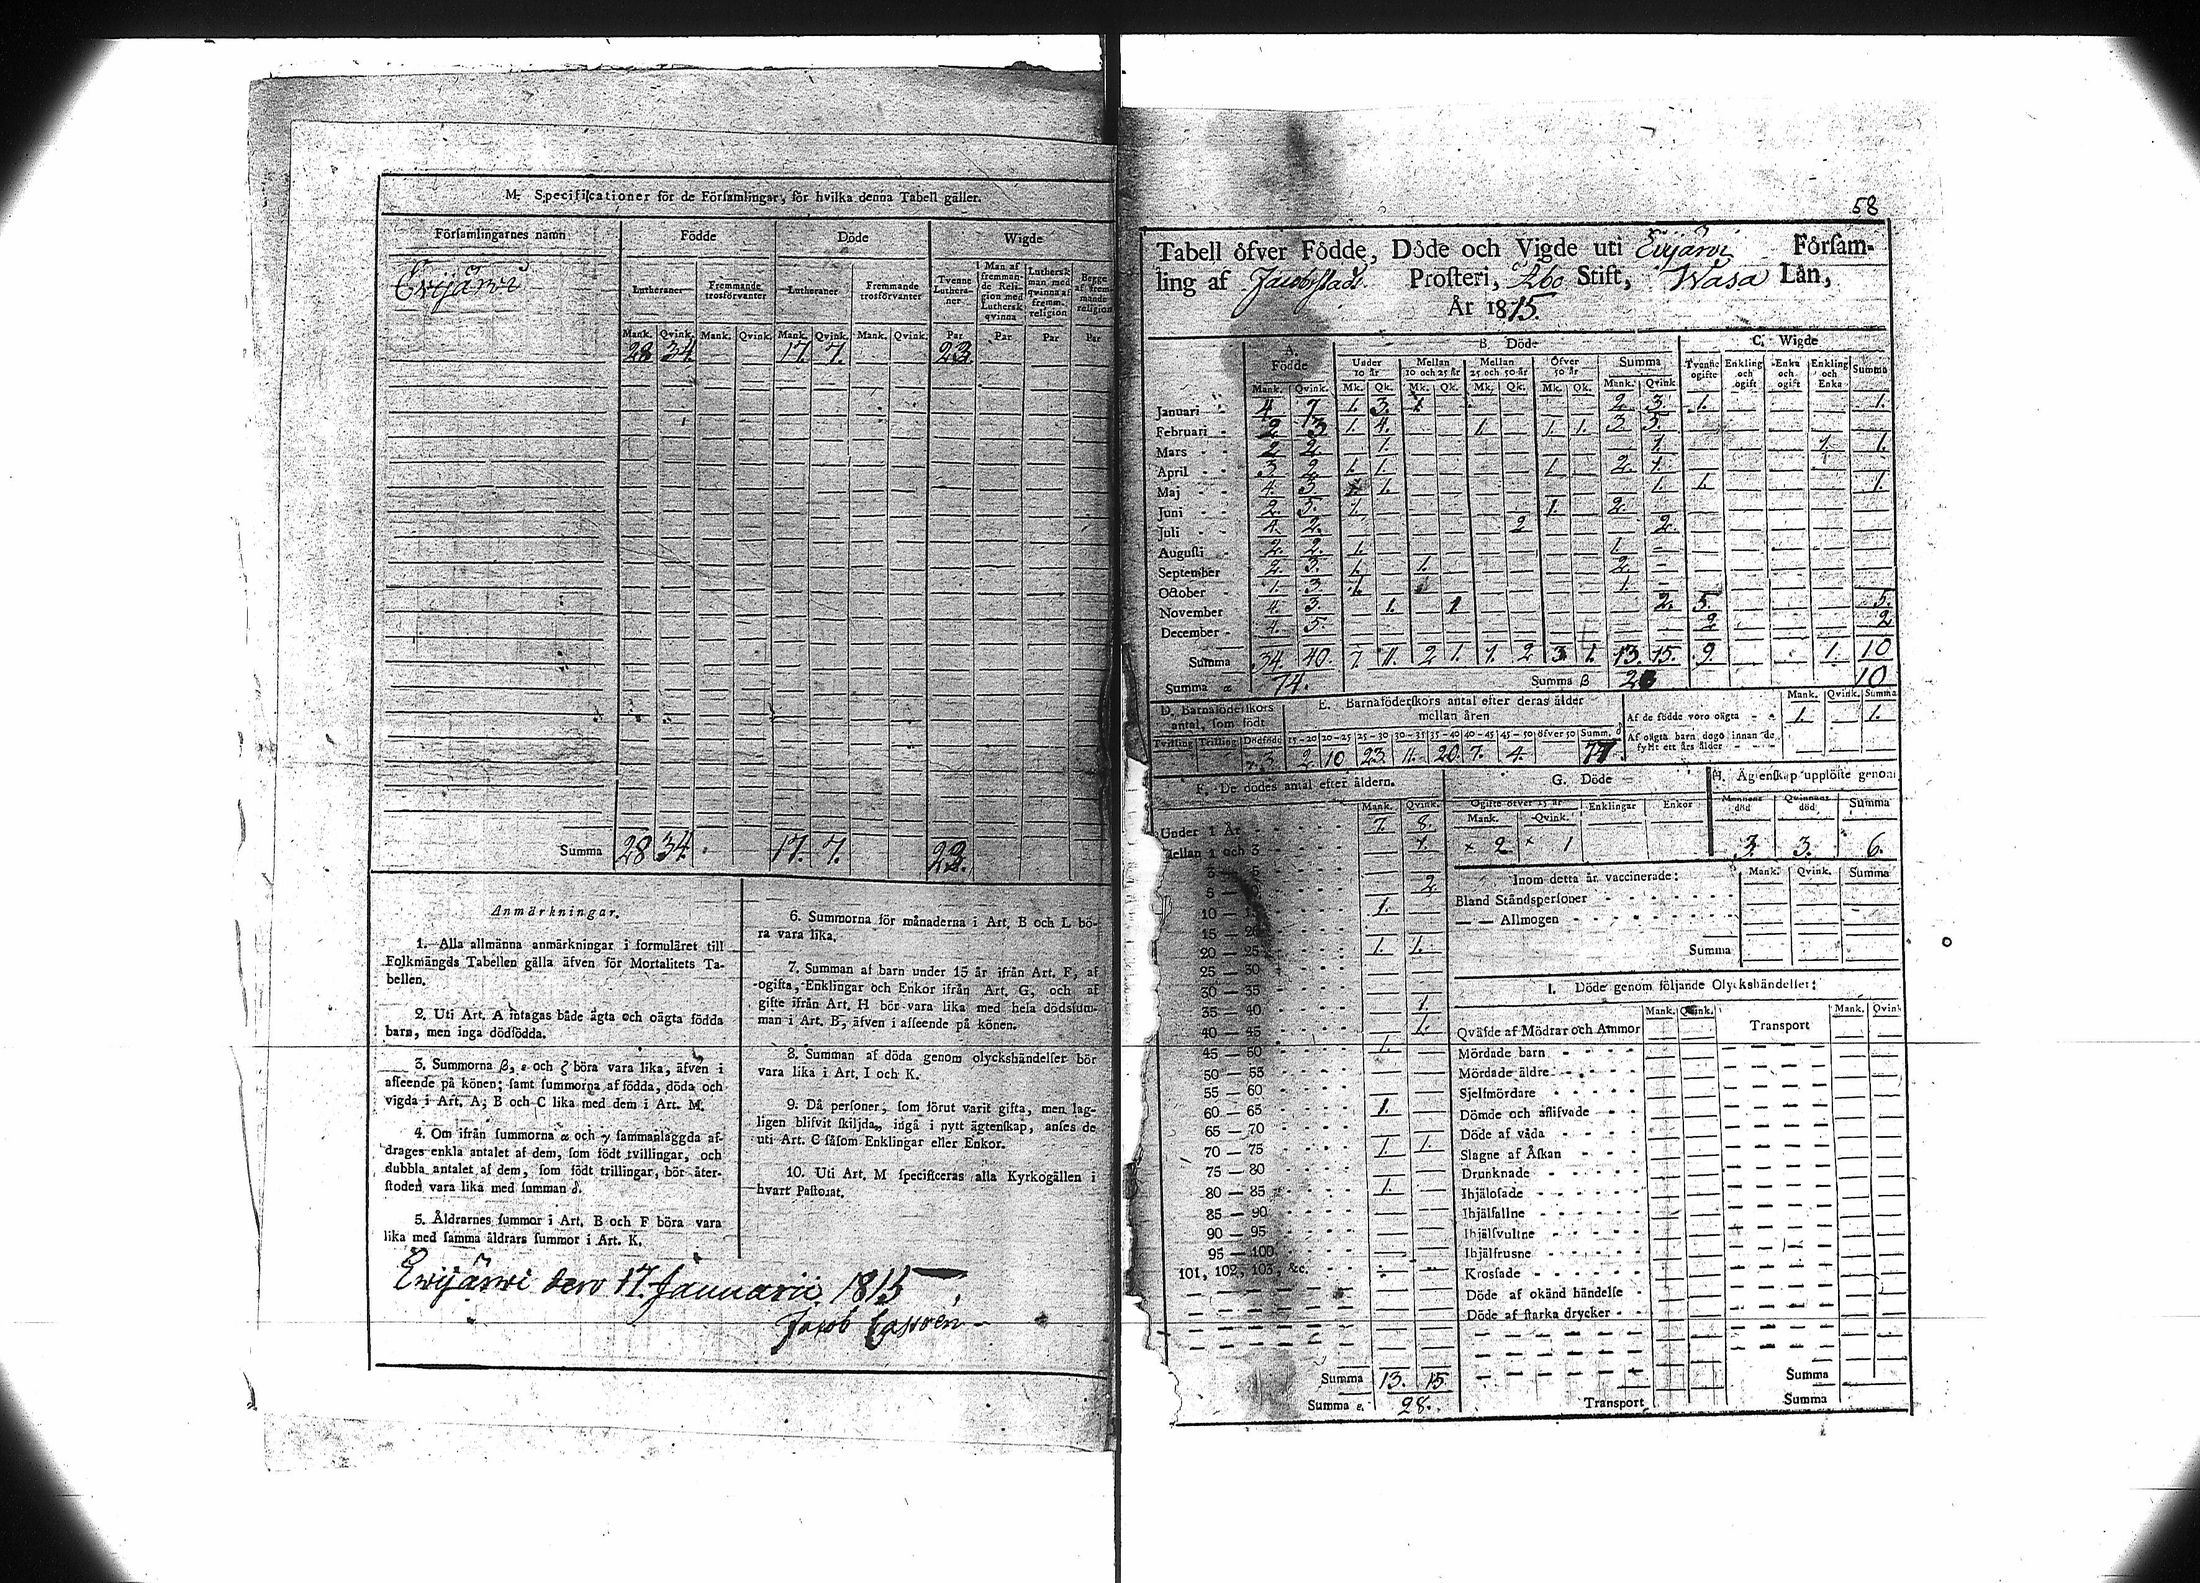 M. Specificationer för de Församlingar, för hvilka denna Tabell gäller.
Församlingarnes namn Födde Döde Wigde
Lutheraner Fremmande trosförvanter Lutheraner Fremmande trosförvanter Tvenne Lutheraner Man af fremmande Religion med Luthersk qvinna Luthersk man med qvinna af fremm. religion Begge af fremmande religion
Mank. Qvink. Mank. Qvink. Mank. Qvink. Mank. Qvink. Par Par Par Par
Evijärvi 28 34. 17. 7. 23
Summa 28 34. 17. 7. 23.
Anmärkningar.
1. Alla allmänna anmärkningar i formuläret till
Folkmängds Tabellen gälla äfven för Mortalitets Ta-
bellen.
2. Uti Art. A intagas både ägta och oägta födda
barn, men inga dödfödda.
3. Summorna β, ε och ζ böra vara lika, äfven i
afseende på könen; samt summorna af födda, döda och
vigda i Art. A, B och C lika med dem i Art. M.
4. Om ifrån summorna α och γ sammanlaggda af-
drages enkla antalet af dem, som födt tvillingar, och
dubbla antalet af dem, som födt trillingar, bör åter-
stoden vara lika med summan δ.
5. Åldrarnes summor i Art. B och F böra vara
lika med samma åldrars summor i Art. K.
6. Summorna för månaderna i Art. B och L bö-
ra vara lika.
7. Summan af barn under 15 år ifrån Art. F, af
ogifta, Enklingar och Enkor ifrån Art. G, och af
gifte ifrån Art. H bör vara lika med hela dödssum-
man i Art. B, äfven i afseende på könen.
8. Summan af döda genom olyckshändelser bör
vara lika i Art. I och K.
9. Då personer, som förut varit gifta, men lag-
ligen blifvit skiljda, ingå i nytt ägtenskap, anses de
uti Art. C såsom Enklingar eller Enkor.
10. Uti Art. M specificeras alla Kyrkogällen i
hvart Pastorat.
Evijärvi den 17. Januarii 1815
Jacob
58
Tabell öfver Födde, Döde och Vigde uti Evijärvi Försam-
ling af Jacobstads Prosteri, Åbo Stift, Wasa Län,
År 1815.
A. Födde B. Döde C. Wigde
Under 10 år Mellan 10 och 25 år Mellan 25 och 50 år Öfver 50 år Summa Tvenne ogifte Enkling och ogift Enka och ogift Enkling och Enka Summa
Mank. Qvink. Mk. Qk. Mk. Qk. Mk. Qk. Mk. Qk. Mank. Qvink.
Januari 4. 7 1. 3. 1. 2. 3. 1. 1.
Februari 2 3 1. 4. 1. 1. 1. 3 5.
Mars 2 2. 1. 1. 1. 1.
April 3 2 1. 1. 1. 2. 1.
Maj 4. 3 1. 1. 1. 1.
Juni 2. 5. 1. 1. 2.
Juli 4. 2. 2 2.
Augusti 2. 2. 1. 1.
September 2. 3. 1. 1. 2.
October 1. 3 1. 1.
November 4. 3. 1. 1 2. 5. 5.
December 4. 5. 2 2
Summa 34. 40. 7 11. 2 1. 1. 2 3 1. 13. 15. 9. 1. 10
Summa α 74. Summa β 28 10
D. Barnaföderskors antal, som födt E. Barnaföderskors antal efter deras ålder mellan åren Mank. Qvink. Summa
Af de födde voro oägta 1. 1.
Af oägta barn dogo innan de fyllt ett års ålder
Tvilling Trilling Dödfödd 15-20 20-25 25-30 30-35 35-40 40-45 45-50 öfver 50 Summ. δ
3 2 10 23. 11. 20. 7. 4. 77
F. De dödes antal efter åldern. G. Döde H. Ägtenskap upplöste genom
Mank. Qvink. Ogifte öfver 15 år Enklingar Enkor Mannens död Qvinnans död Summa
Mank. Qvink.
2 1 3. 3. 6.
Under 1 År 7. 8.
Mellan 1 och 3 1.
3 — 5
5 — 2
10 — 1.
15 — 20
20 — 25 1. 1.
25 — 30
30 — 35
35 — 40 1.
40 — 45 1.
45 — 50 1.
50 — 55
55 — 60
60 — 65 1.
65 — 70
70 — 75 1. 1.
75 — 80
80 — 85 1.
85 — 90
90 — 95
95 — 100
101, 102, 103, &c.
Summa 13. 15
Summa ε. 28.
Inom detta år vaccinerade: Mank. Qvink. Summa
Bland Ståndspersoner
— — Allmogen
Summa
I. Döde genom följande Olyckshändelser:
Mank. Qvink. Transport Mank. Qvink
Qväfde af Mödrar och Ammor
Mördade barn
Mördade äldre
Sjelfmördare
Dömde och aflifvade
Döde af våda
Slagne af Åskan
Drunknade
Ihjälosade
Ihjälfallne
Ihjälsvultne
Ihjälfrusne
Krossade
Döde af okänd händelse
Döde af starka drycker
Summa
Transport Summa